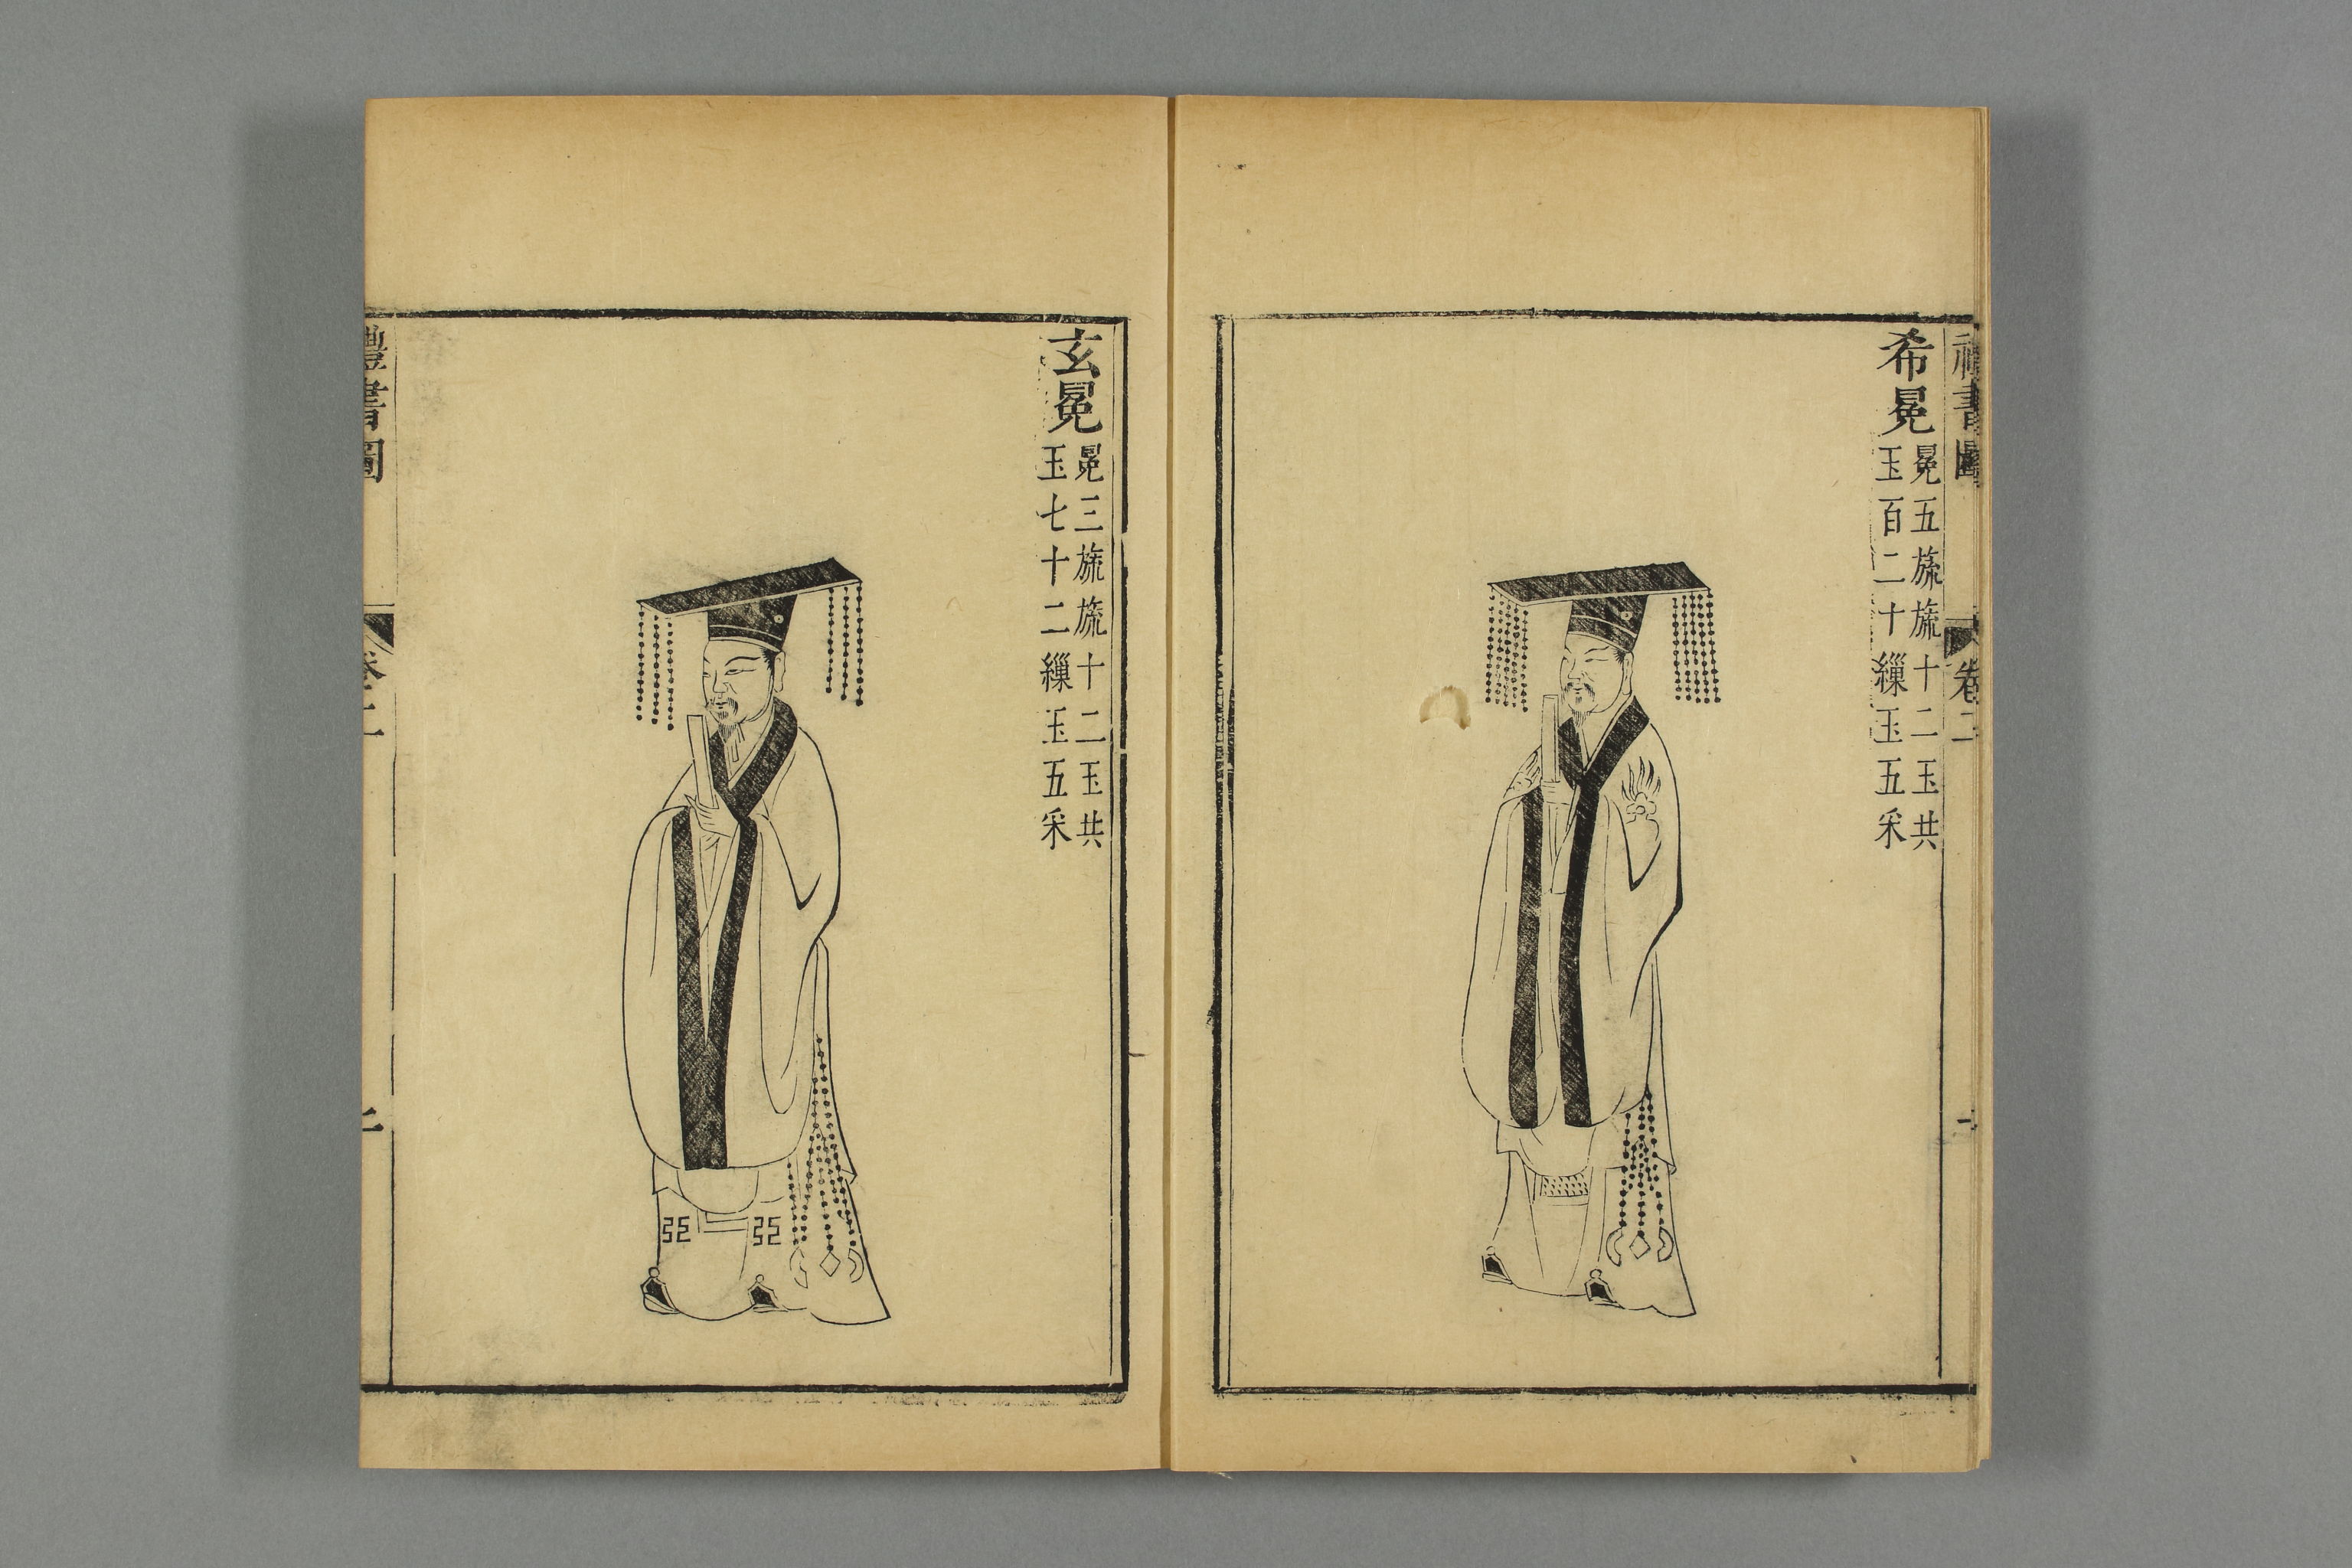 禮書圖 卷二
希冕
冕五旒旒十二玉共
玉百二十繅玉五采
玄冕
冕三旒旒十二玉共
玉七十二繅玉五采
禮書圖 卷二